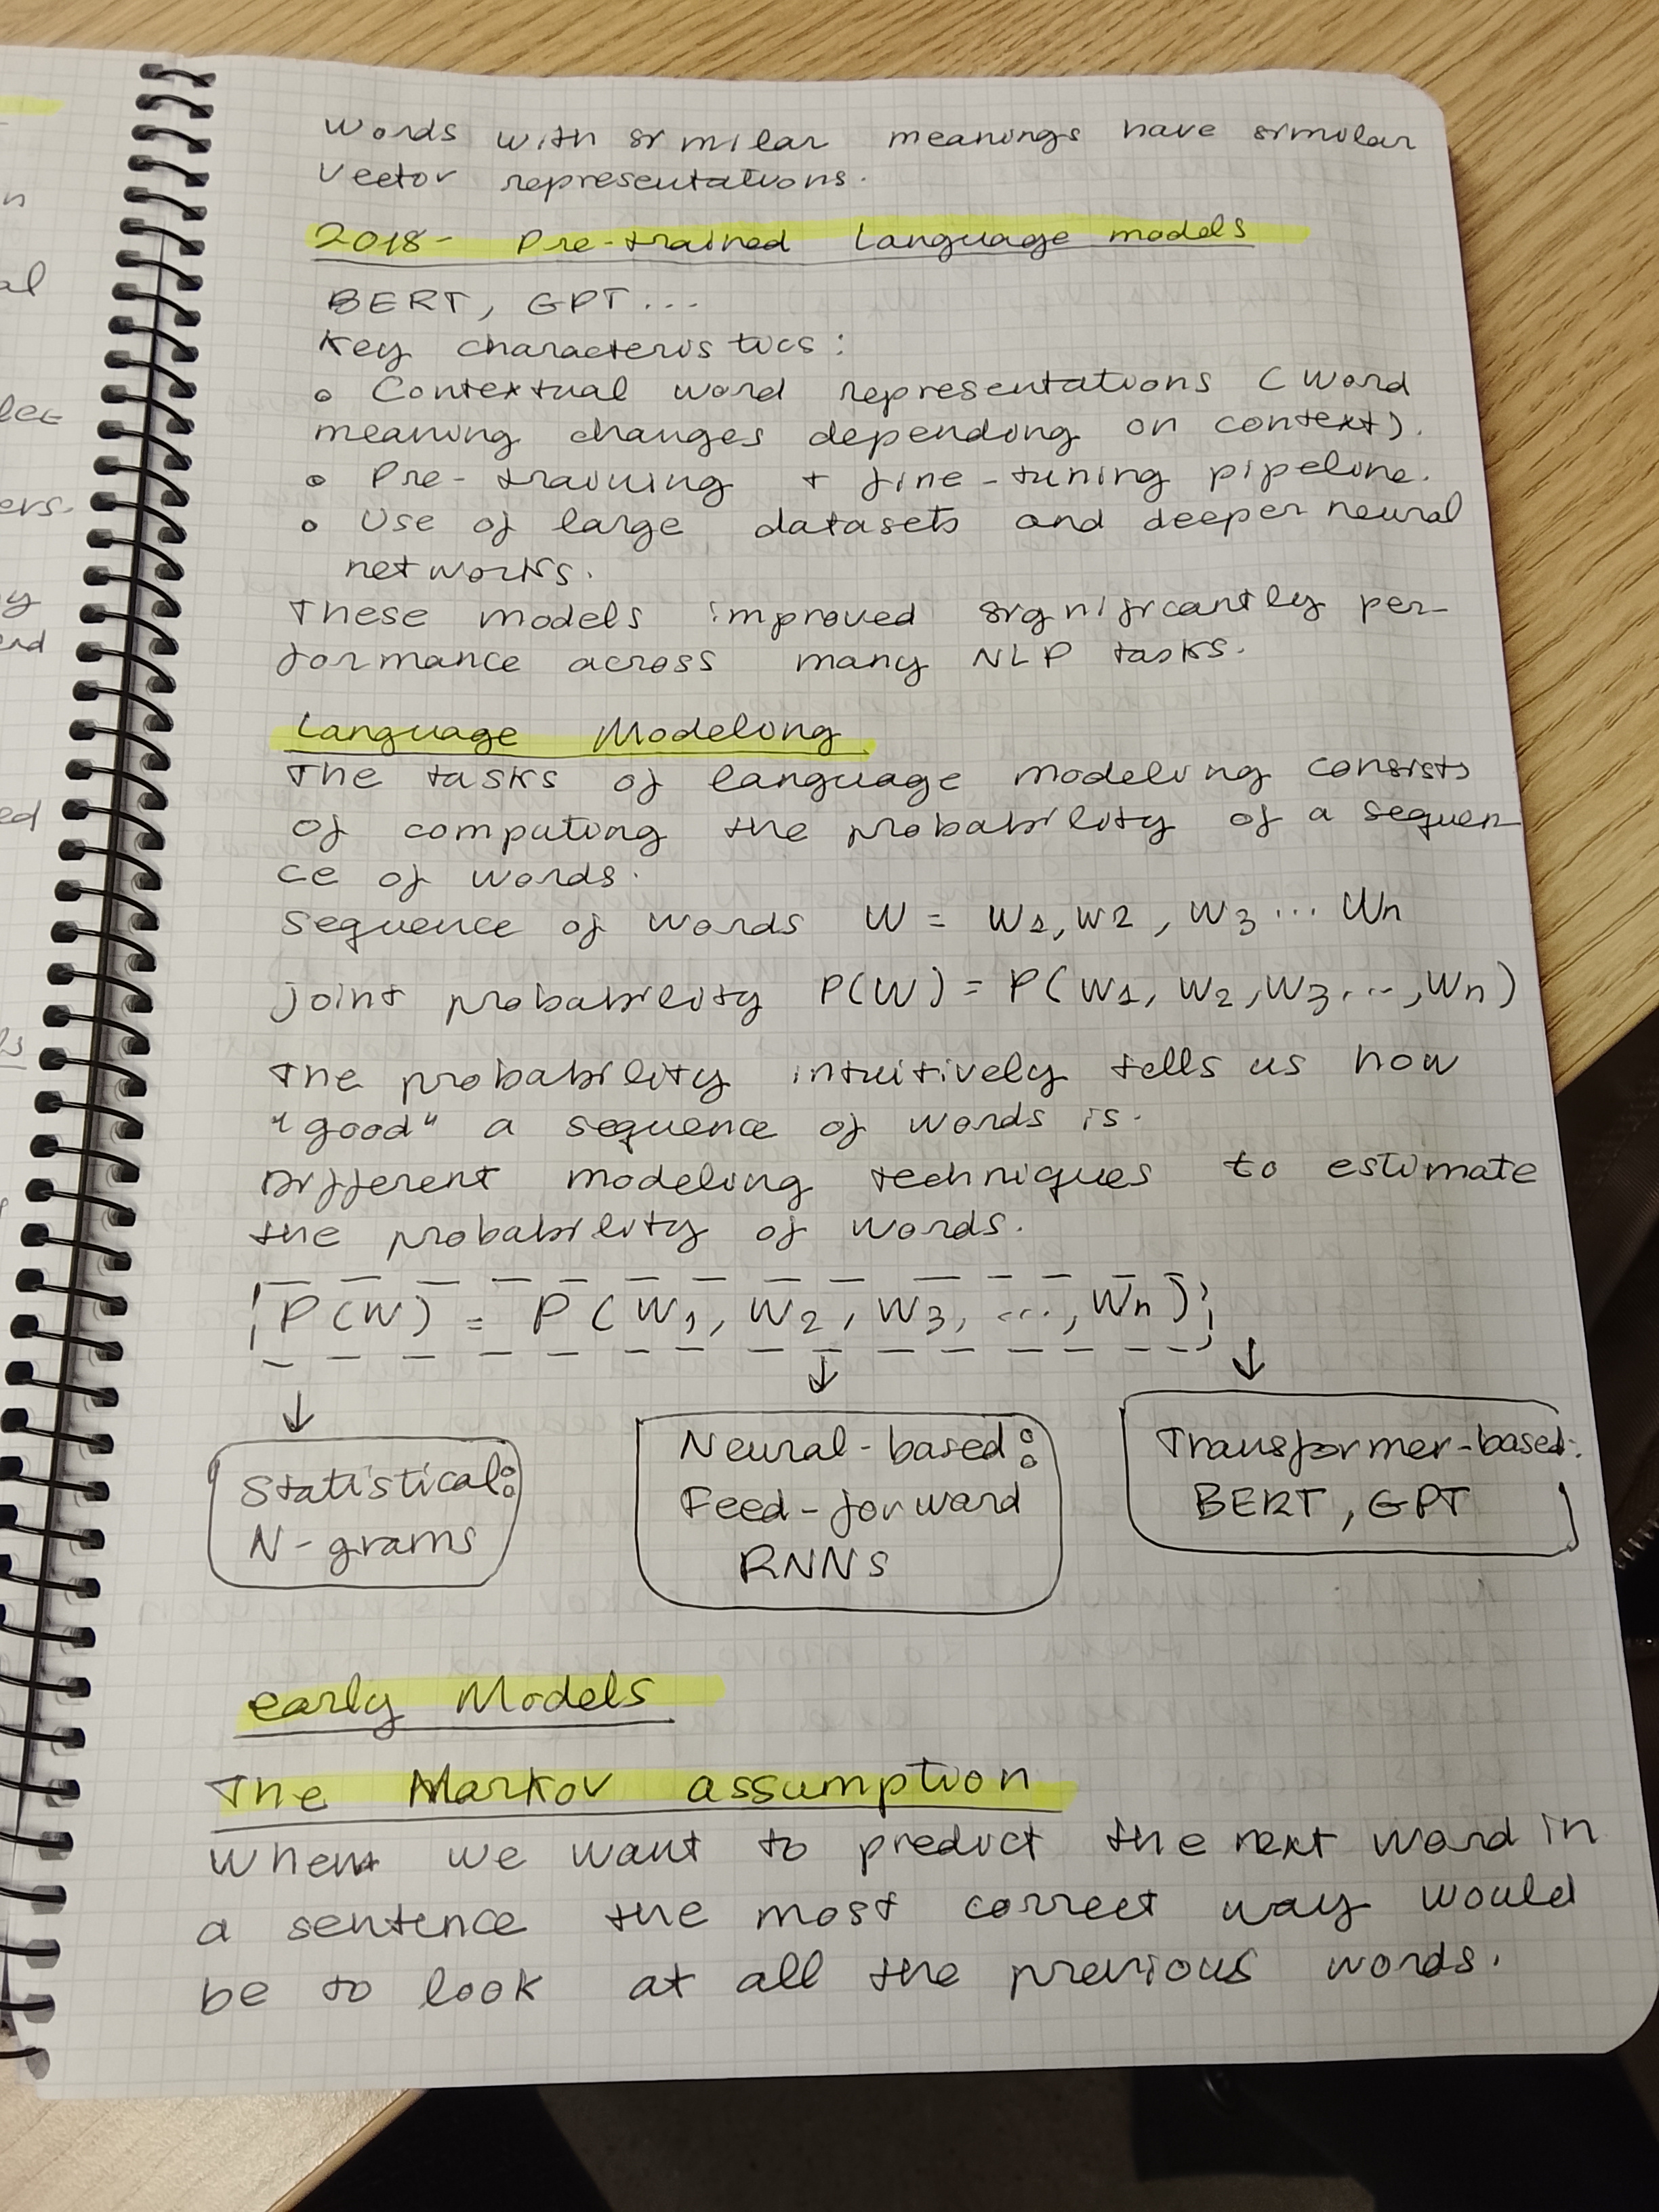 Words with similar meanings have similar
vector representations.
2018- Pre-trained Language models
BERT, GPT...
Key characteristics:
• Contextual word representations (word
meaning changes depending on context).
• Pre-training + fine-tuning pipeline.
• Use of large datasets and deeper neural
networks.
These models improved significantly per-
formance across many NLP tasks.
Language Modeling
The tasks of language modeling consists
of computing the probability of a sequen
ce of words.
Sequence of words W = w1, w2, w3 ... wn
joint probability P(W) = P(w1, w2, w3, ..., wn)
The probability intuitively tells us how
"good" a sequence of words is.
Different modeling techniques to estimate
the probability of words.
P(W) = P(w1, w2, w3, ..., wn)
↓ ↓ ↓
Statistical:
N-grams
Neural-based:
Feed-forward
RNNs
Transformer-based:
BERT, GPT
early Models
The Markov assumption
When we want to predict the next word in
a sentence the most correct way would
be to look at all the previous words.